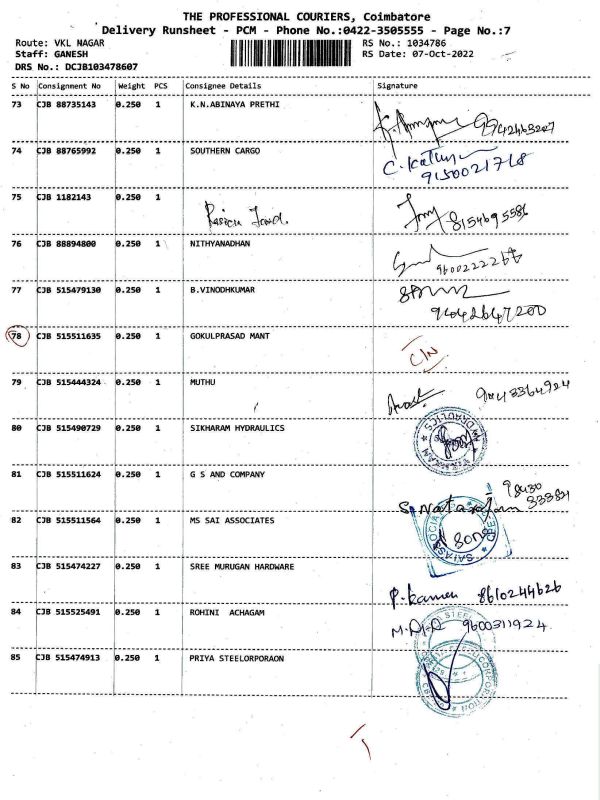 THE PROFESSIONAL COURIERS, Coimbatore
Delivery Runsheet - PCM - Phone No.:0422-3505555 - Page No.:7
Route: VKL NAGAR RS No.: 1034786
Staff: GANESH RS Date: 07-Oct-2022
DRS No.: DCJB103478607
S No Consignment No Weight PCS Consignee Details Signature
73 CJB 88735143 0.250 1 K.N.ABINAYA PRETHI
74 CJB 88765992 0.250 1 SOUTHERN CARGO
9150021718
75 CJB 1182143 0.250 1
8154695586
76 CJB 88894800 0.250 1 NITHYANADHAN
77 CJB 515479130 0.250 1 B.VINODHKUMAR
78 CJB 515511635 0.250 1 GOKULPRASAD MANT
C/N
79 CJB 515444324 0.250 1 MUTHU
80 CJB 515490729 0.250 1 SIKHARAM HYDRAULICS
81 CJB 515511624 0.250 1 G S AND COMPANY
S. Natarajan
82 CJB 515511564 0.250 1 MS SAI ASSOCIATES
83 CJB 515474227 0.250 1 SREE MURUGAN HARDWARE
8610244626
84 CJB 515525491 0.250 1 ROHINI ACHAGAM
9600311924
85 CJB 515474913 0.250 1 PRIYA STEELORPORAON